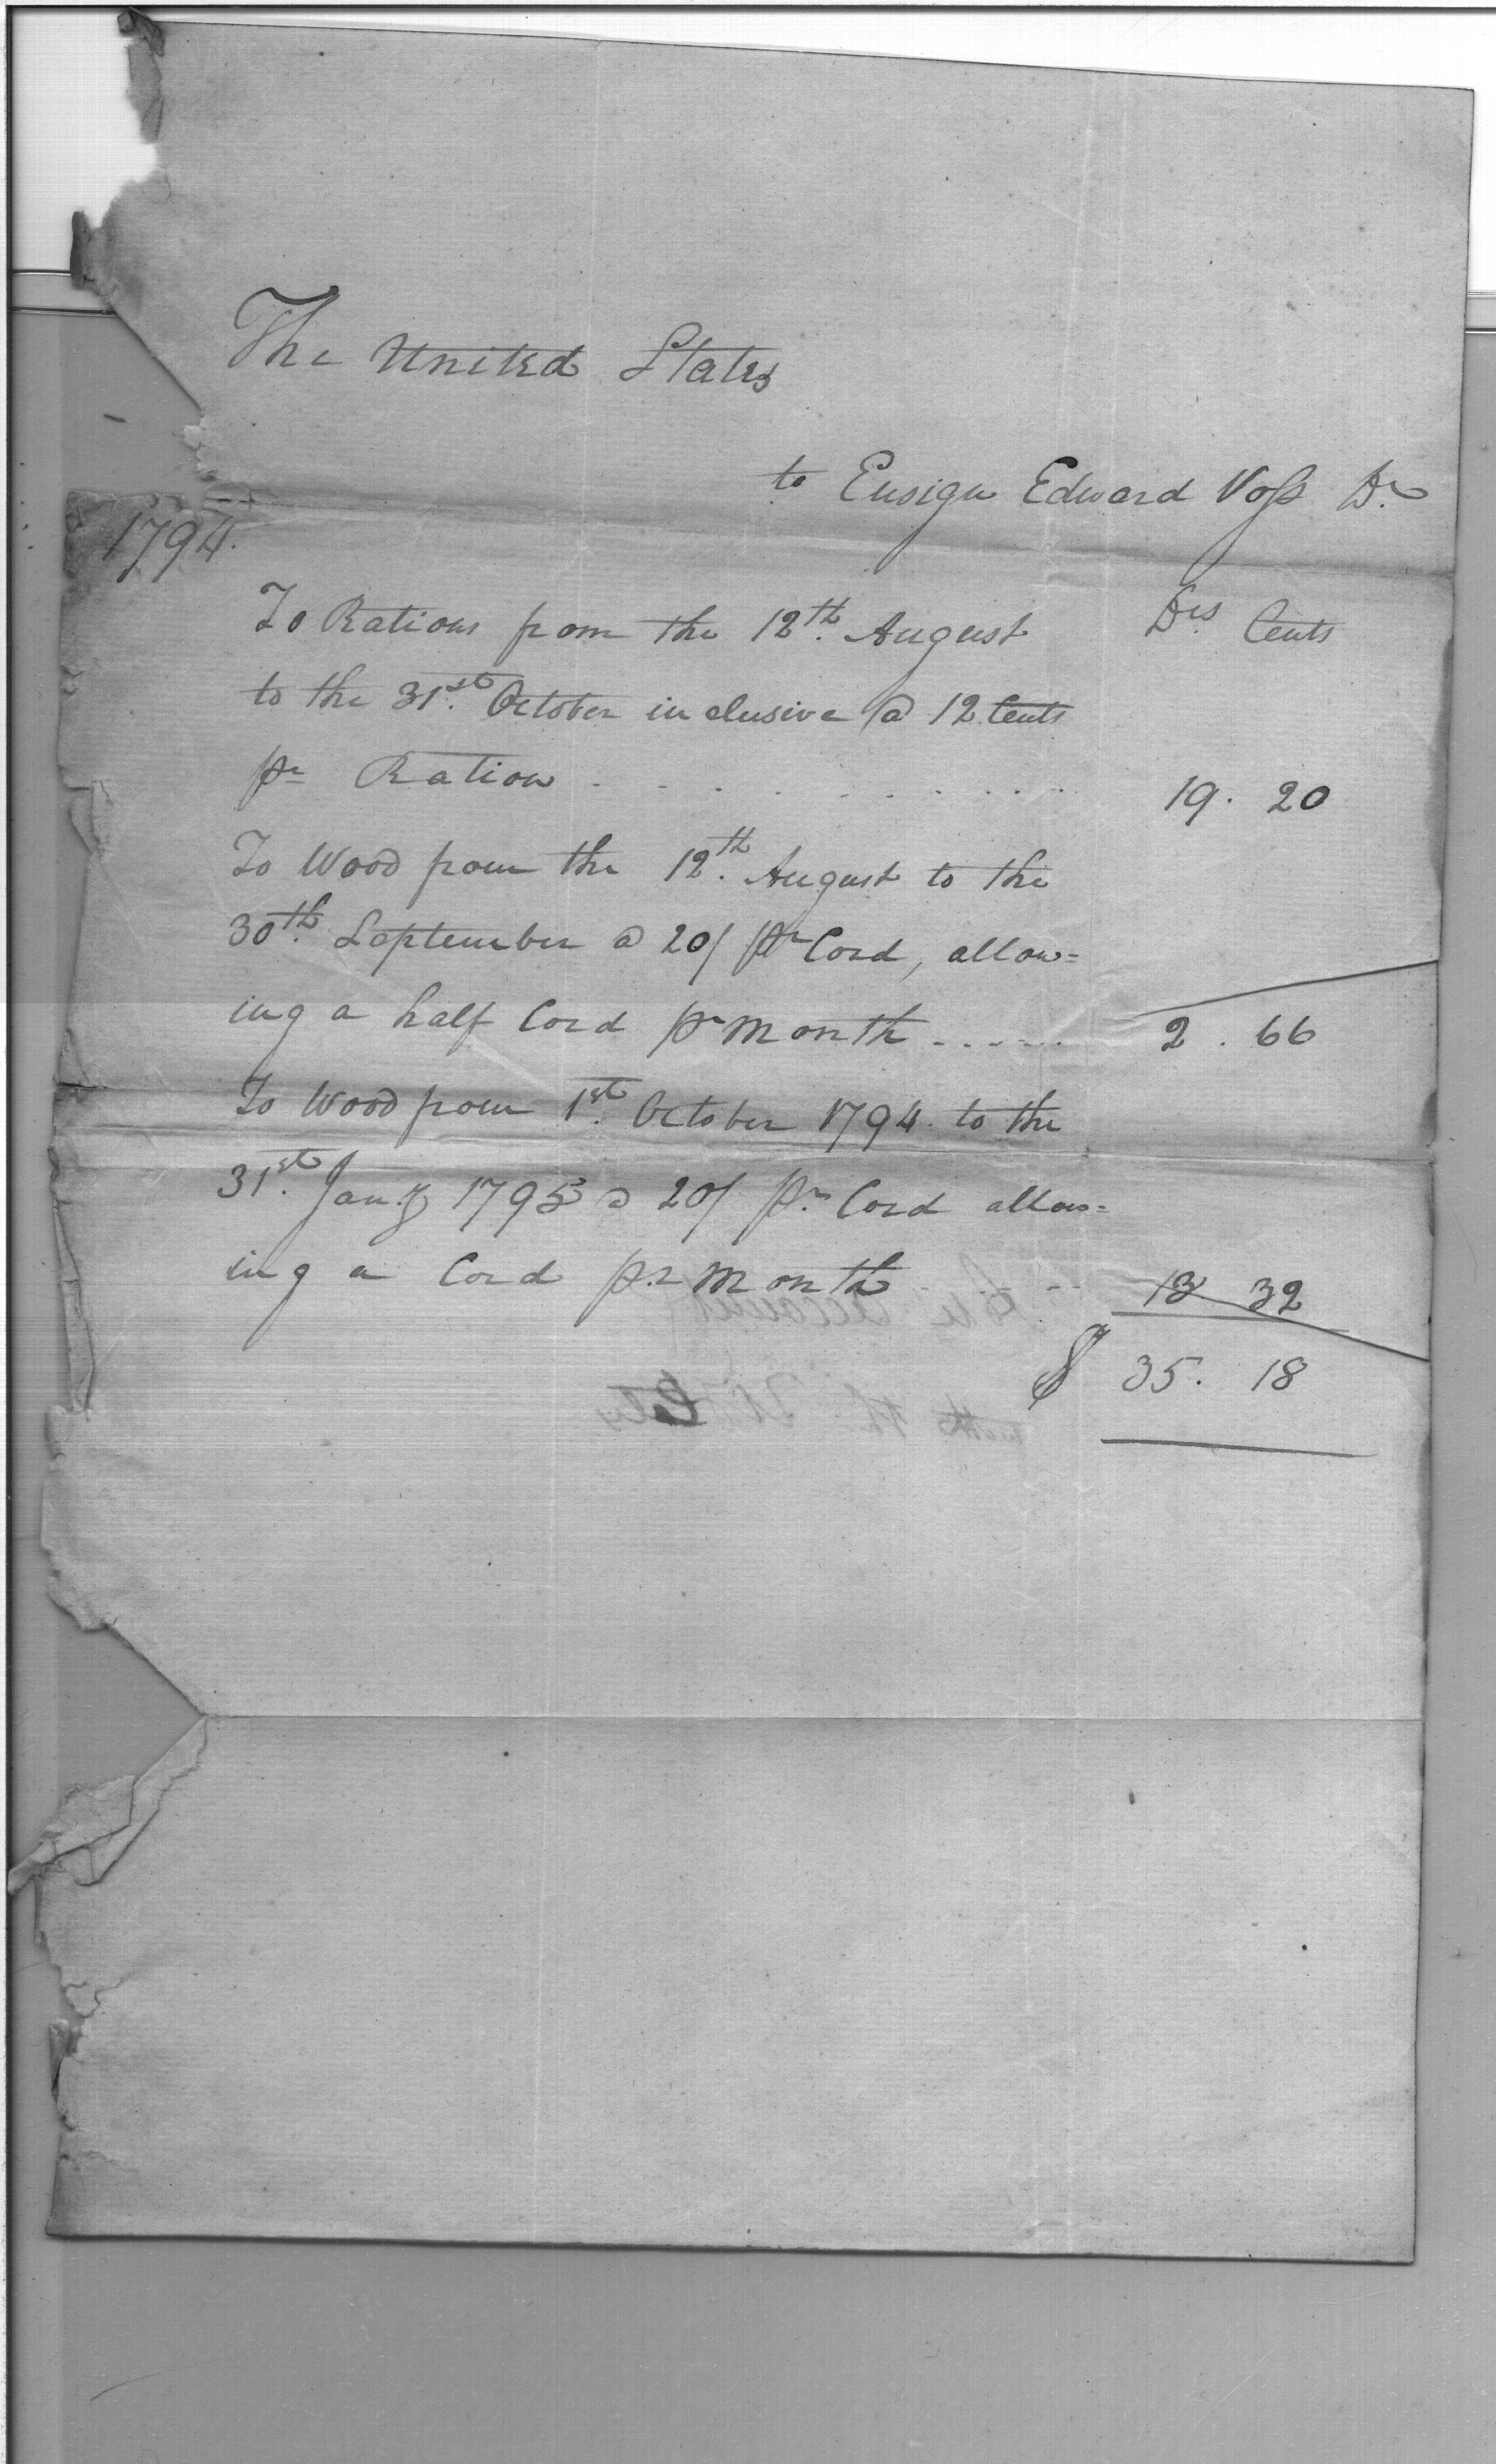 The United States
to Ensign Edward Voss Dr.
1794.
To Rations from the 12th. August Drs. Cents
to the 31st. October inclusive @ 12 Cents
pr Ration . . . . . . . . . . 19. 20
To Wood from the 12th. August to the
30th. September @ 20/ pr Cord, allow=
ing a half Cord pr Month ...... 2. 66
To Wood from 1st. October 1794. to the
31st. Jany 1795 @ 20/ pr. Cord allow=
ing a Cord pr Month . . . . 13 32
$ 35. 18